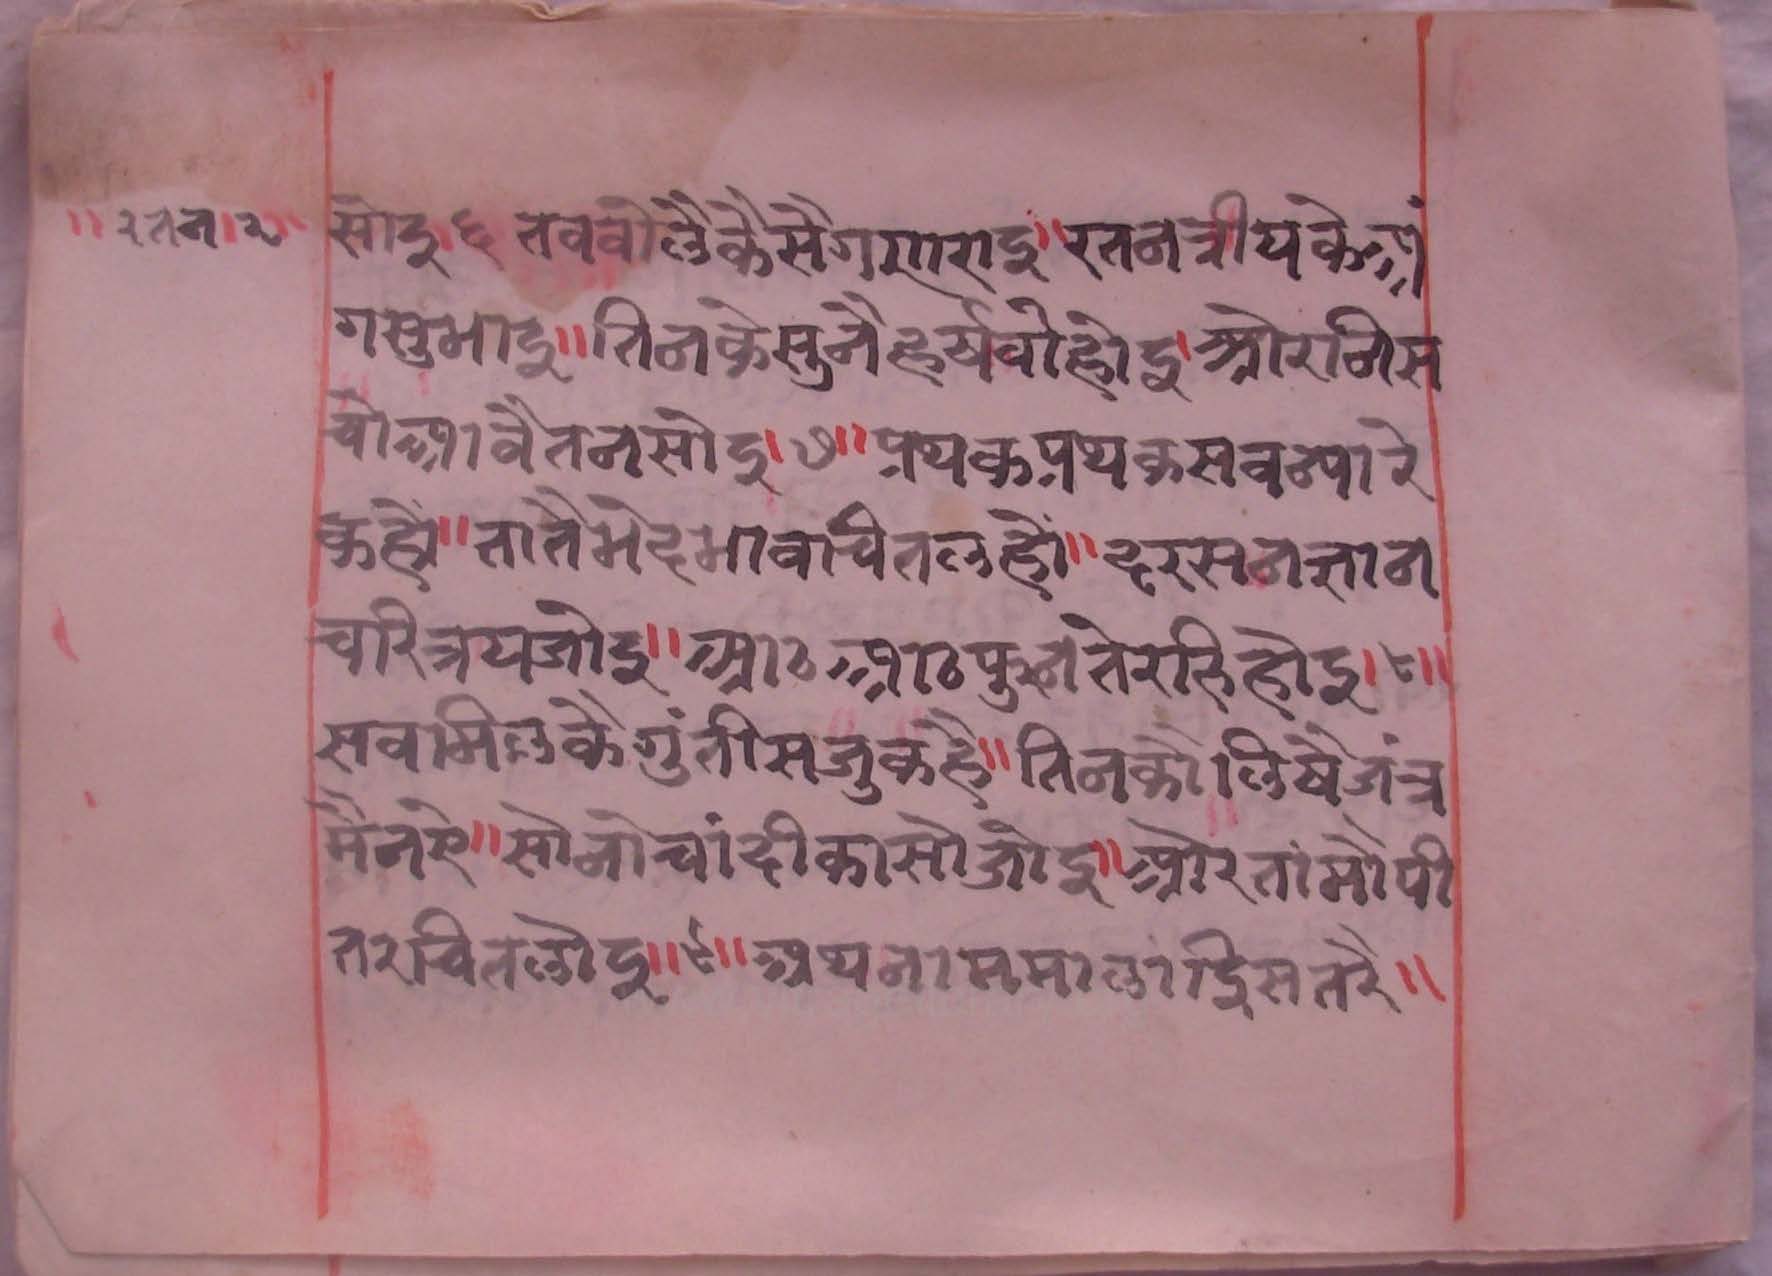 ॥रतन।२॥ सोइ।६ तववोलैकैसैगणराइ॥रतनत्रीयकेअं
गसुभाइ॥तिनकेसुनैहर्यवोहोइ।ओरनिस
चौआवैतनसोइ।७॥प्रथकप्रथकसवन्यारे
कहौ॥तातैभेदभावचितलहौं॥दरसनज्ञान
चरित्रयजोइ॥आठआठफुनतेरहिहोइ।८॥
सवमिलकैगुंतीसजुकहै॥तिनकौलिषैजंत्र
मैनरे॥सोनोचांदीकासोजोइ॥ओरतांमोपी
तरचितलोइ॥९॥अथनाममालाद्विसतरै॥